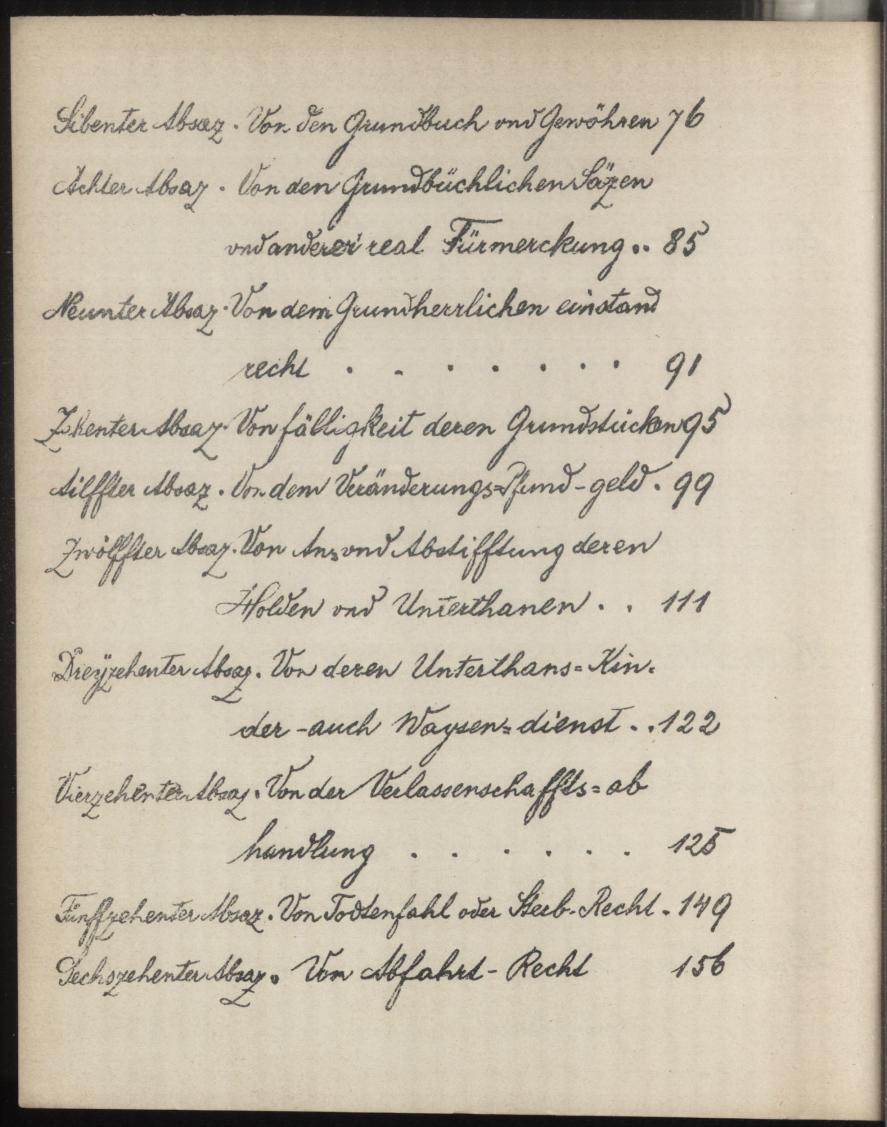 Sibenter Absaz. Von den Grundbuch vnd Gewöhren 76
Achter Absaz. Von den Grundbüchlichen Säzen
vnd anderer real Fürmerckung .. 85
Neunter Absaz. Von dem Grundherrlichen einstand
recht . . . . . . . 91
Zehenter Absaz. Von fälligkeit deren Grundstücken 95
Ailffter Absaz. Von dem Veränderungs=Pfund-geld. 99
Zwölffter Absaz. Von An= vnd Abstifftung deren
Holden vnd Unterthanen . . 111
Dreÿzehenter Absaz. Von deren Unterthans=Kin-
der-auch Waysen=dienst . . 122
Vierzehenter Absaz. Von der Verlassenschaffts=ab
handlung . . . . . . 125
Fünffzehenter Absaz. Von Todtenfahl oder Sterb-Recht. 149
Sechszehenter Absaz. Von Abfahrt-Recht 156